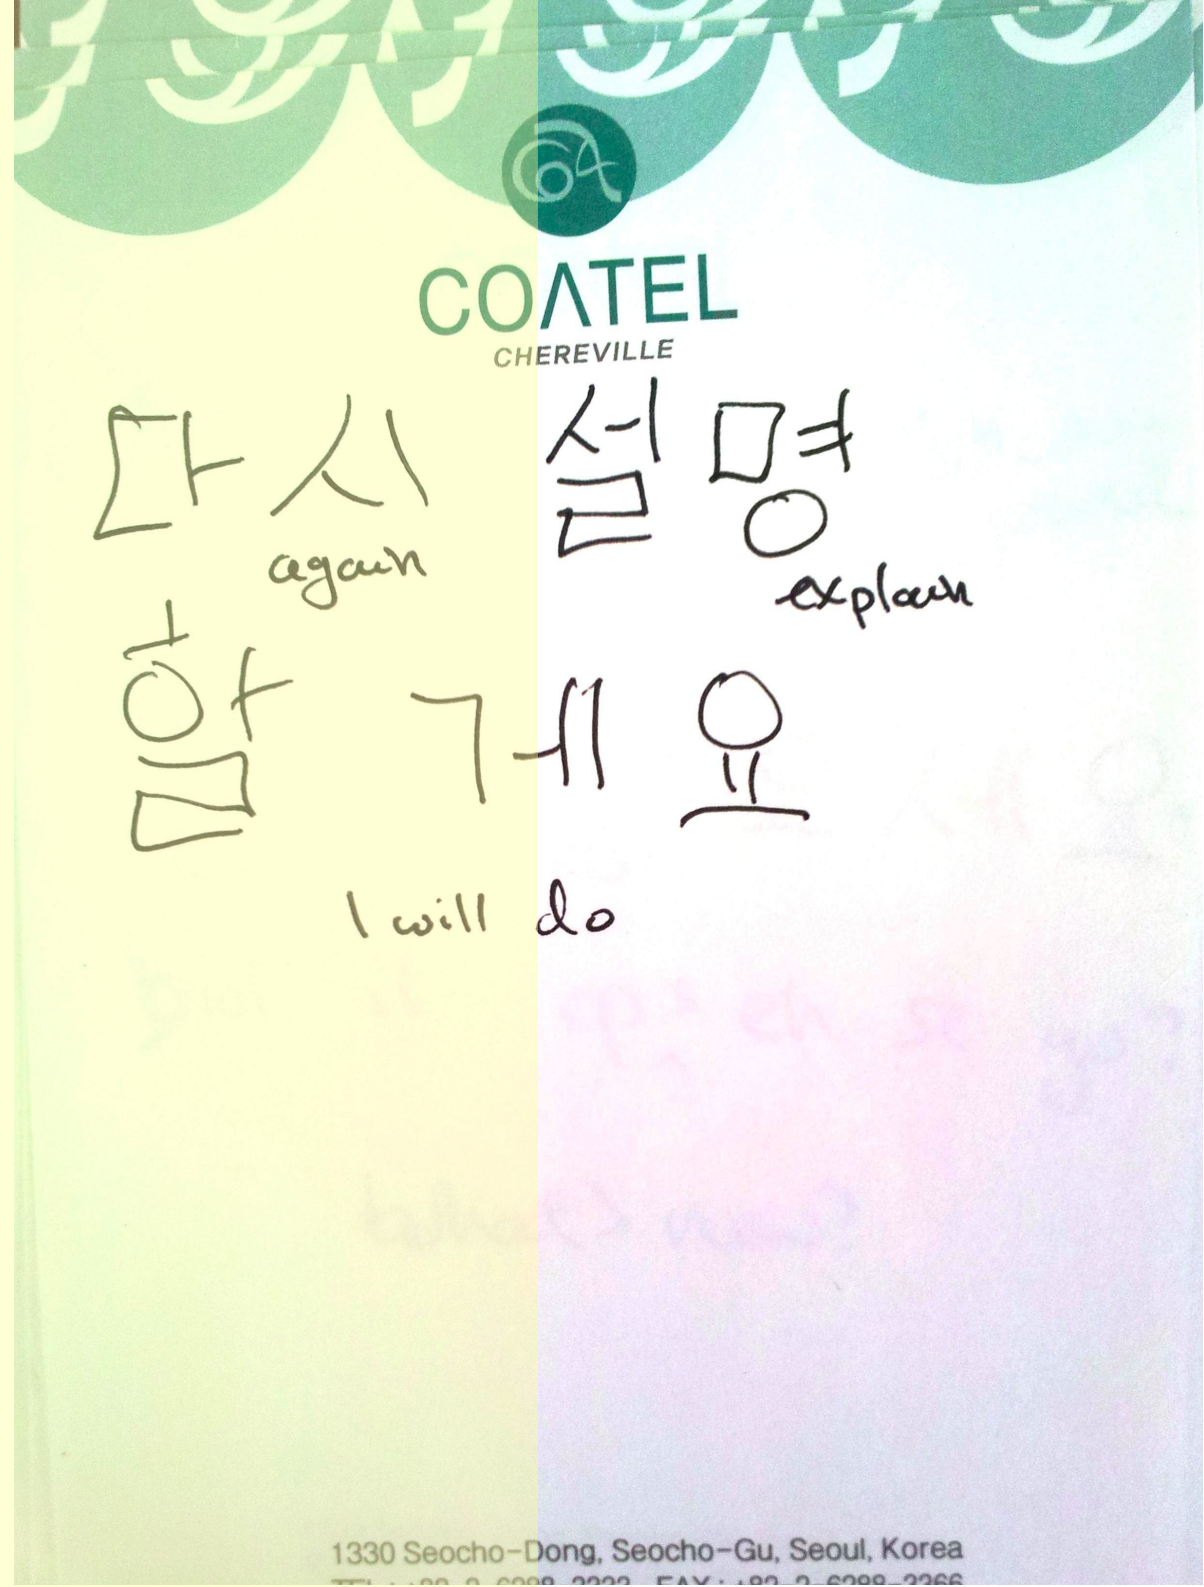 COATEL
CHEREVILLE
다시 설명
again explain
할 게 요
I will do
1330 Seocho-Dong, Seocho-Gu, Seoul, Korea